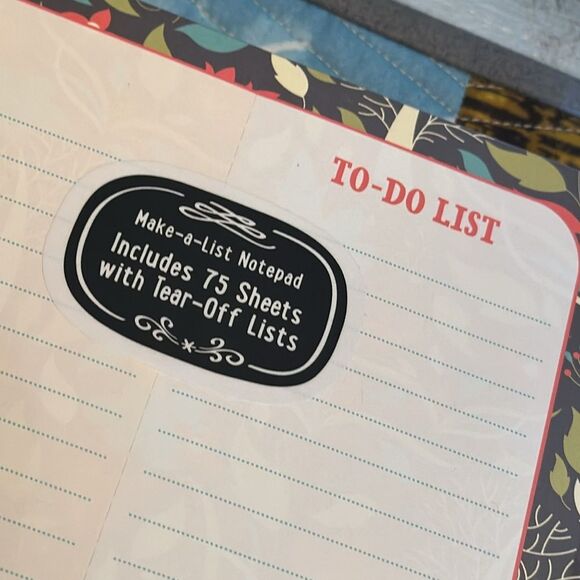 TO-DO LIST
Make-a-List Notepad
Includes 75 Sheets
with Tear-Off Lists